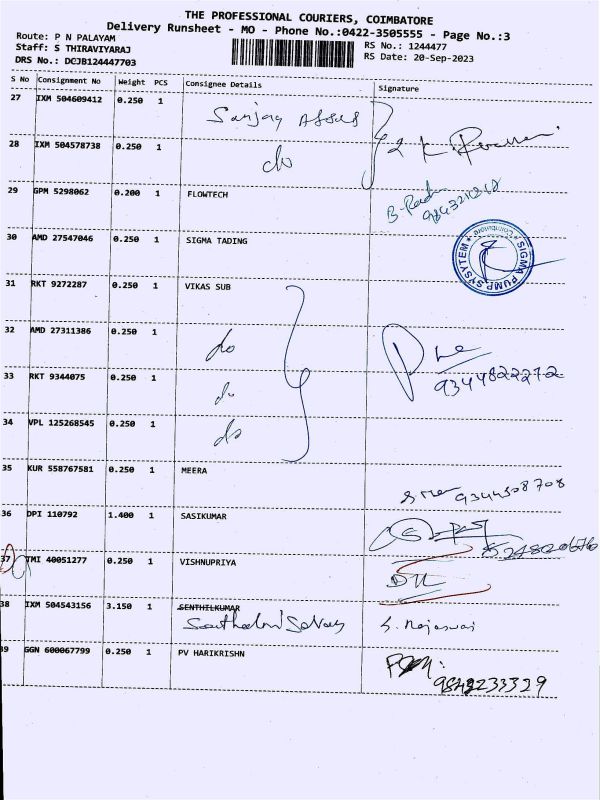 THE PROFESSIONAL COURIERS, COIMBATORE
Delivery Runsheet - MO - Phone No.:0422-3505555 - Page No.:3
Route: P N PALAYAM
RS No.: 1244477
Staff: S THIRAVIYARAJ
RS Date: 20-Sep-2023
DRS No.: DCJB124447703
S No Consignment No Weight PCS Consignee Details Signature
27 IXM 504609412 0.250 1 Sanjay
28 IXM 504578738 0.250 1 do
29 GPM 5298062 0.200 1 FLOWTECH
30 AMD 27547046 0.250 1 SIGMA TADING
SIGMA PUMP SYSYTEM * Coimbatore *
31 RKT 9272287 0.250 1 VIKAS SUB
32 AMD 27311386 0.250 1 do
33 RKT 9344075 0.250 1 do 9344822272
34 VPL 125268545 0.250 1 do
35 KUR 558767581 0.250 1 MEERA 9344508708
36 DPI 110792 1.400 1 SASIKUMAR
37 TMI 40051277 0.250 1 VISHNUPRIYA
38 IXM 504543156 3.150 1 SENTHILKUMAR
39 GGN 600067799 0.250 1 PV HARIKRISHN